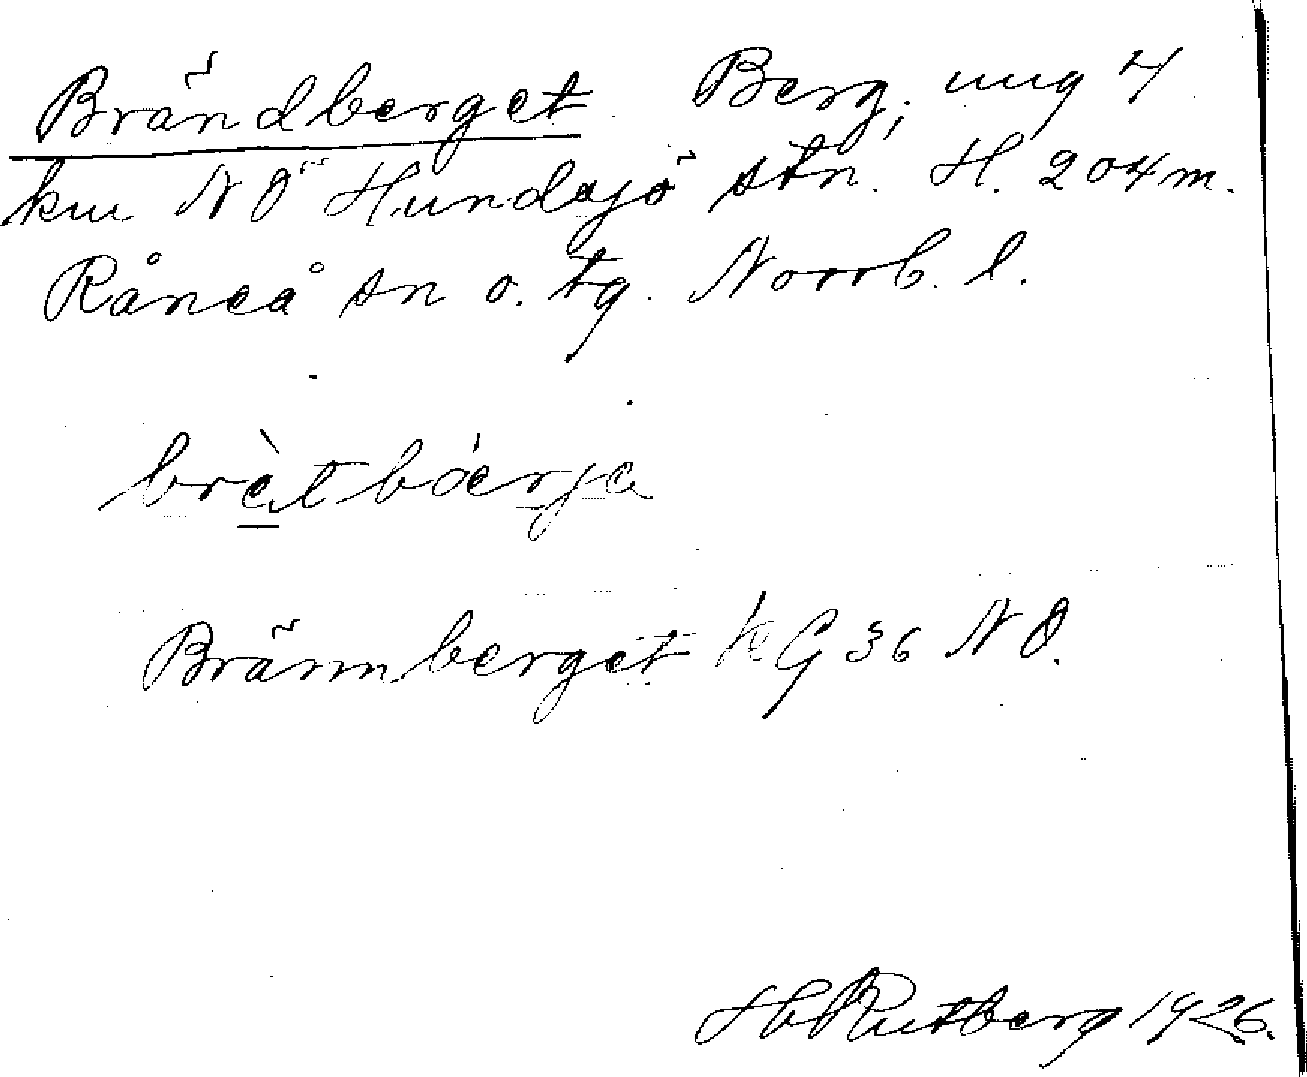 Brändberget Berg, ung 4
km NÖ Hundsjö stn. H. 204 m.
Råneå sn o. tg. Norrb. l.
Brännberget kG 36 NO.
H Rutberg 1926.